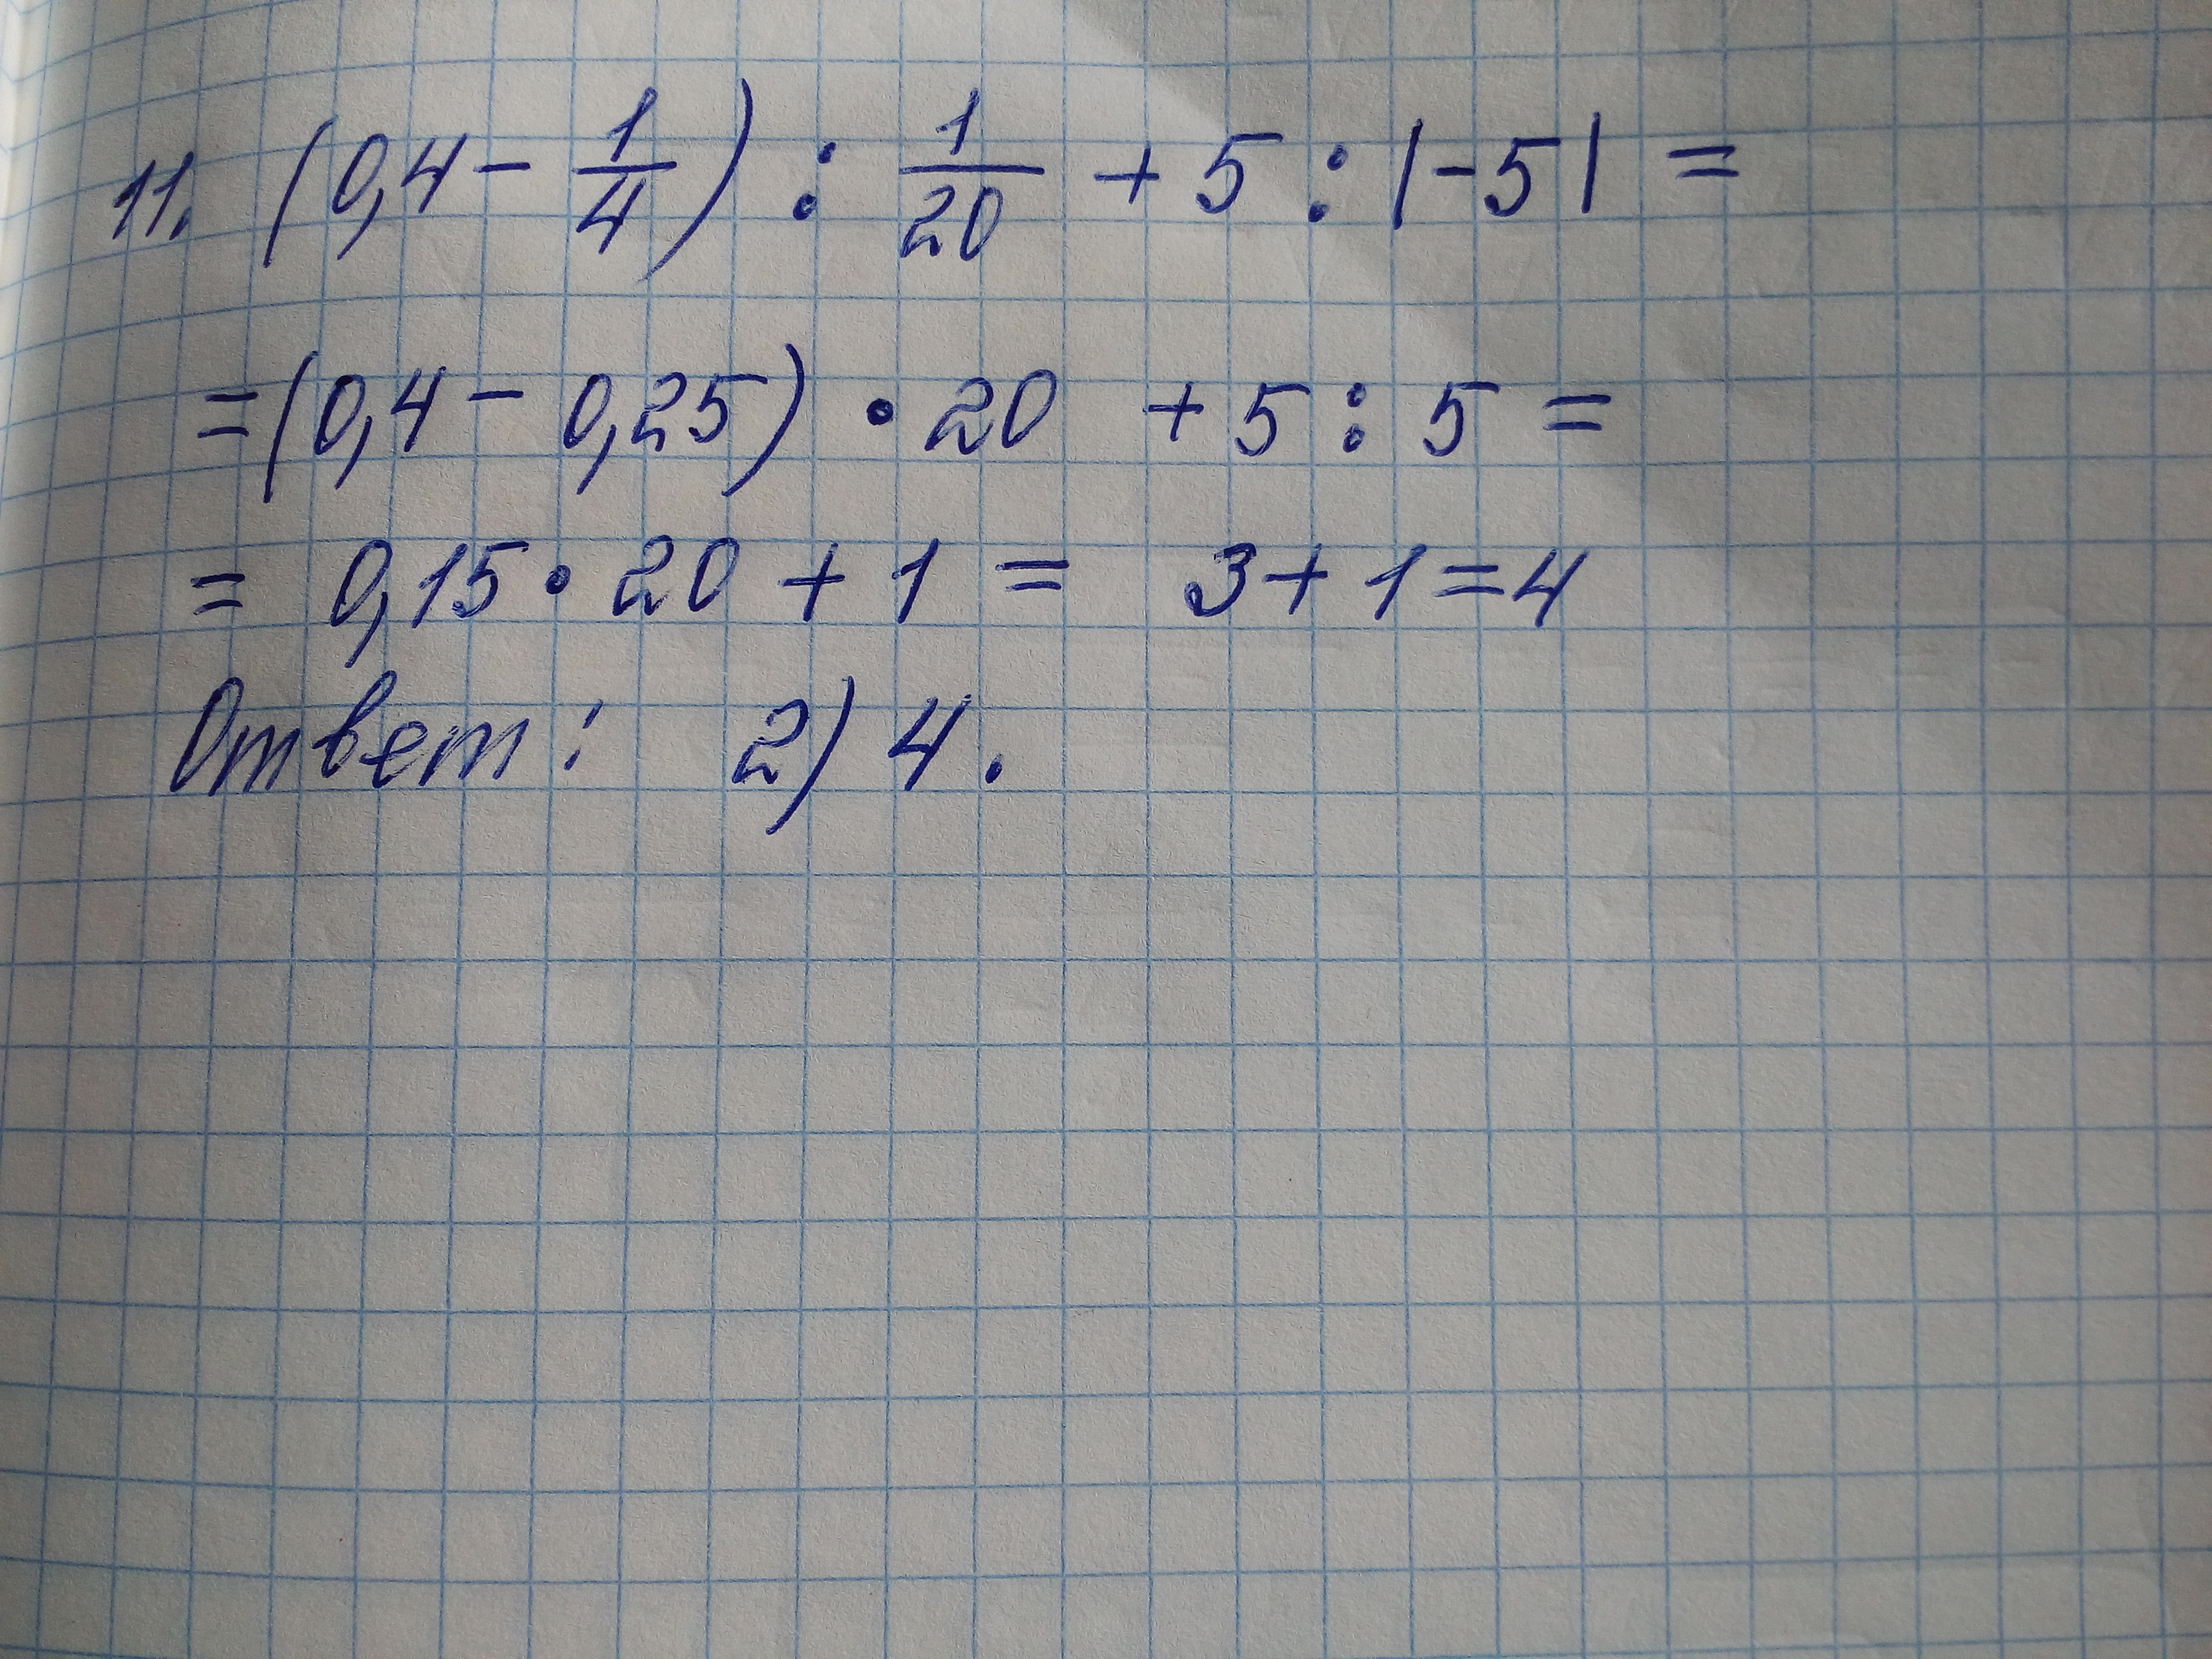 11. (0,4 - 1/4) : 1/20 + 5 : |-5| =
= (0,4 - 0,25) • 20 + 5 : 5 =
= 0,15 • 20 + 1 = 3 + 1 = 4
Ответ: 2) 4.